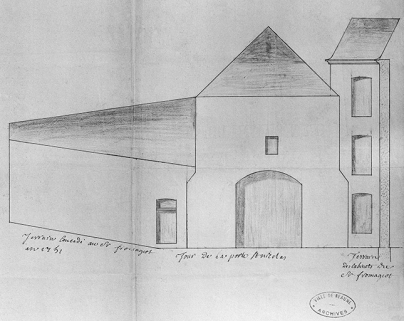 Terrain concédé au Sr fromageot
en 17
Tour de la porte St nicolas
Terrain
du Sr fromageot
VILLE DE BEAUNE
ARCHIVES